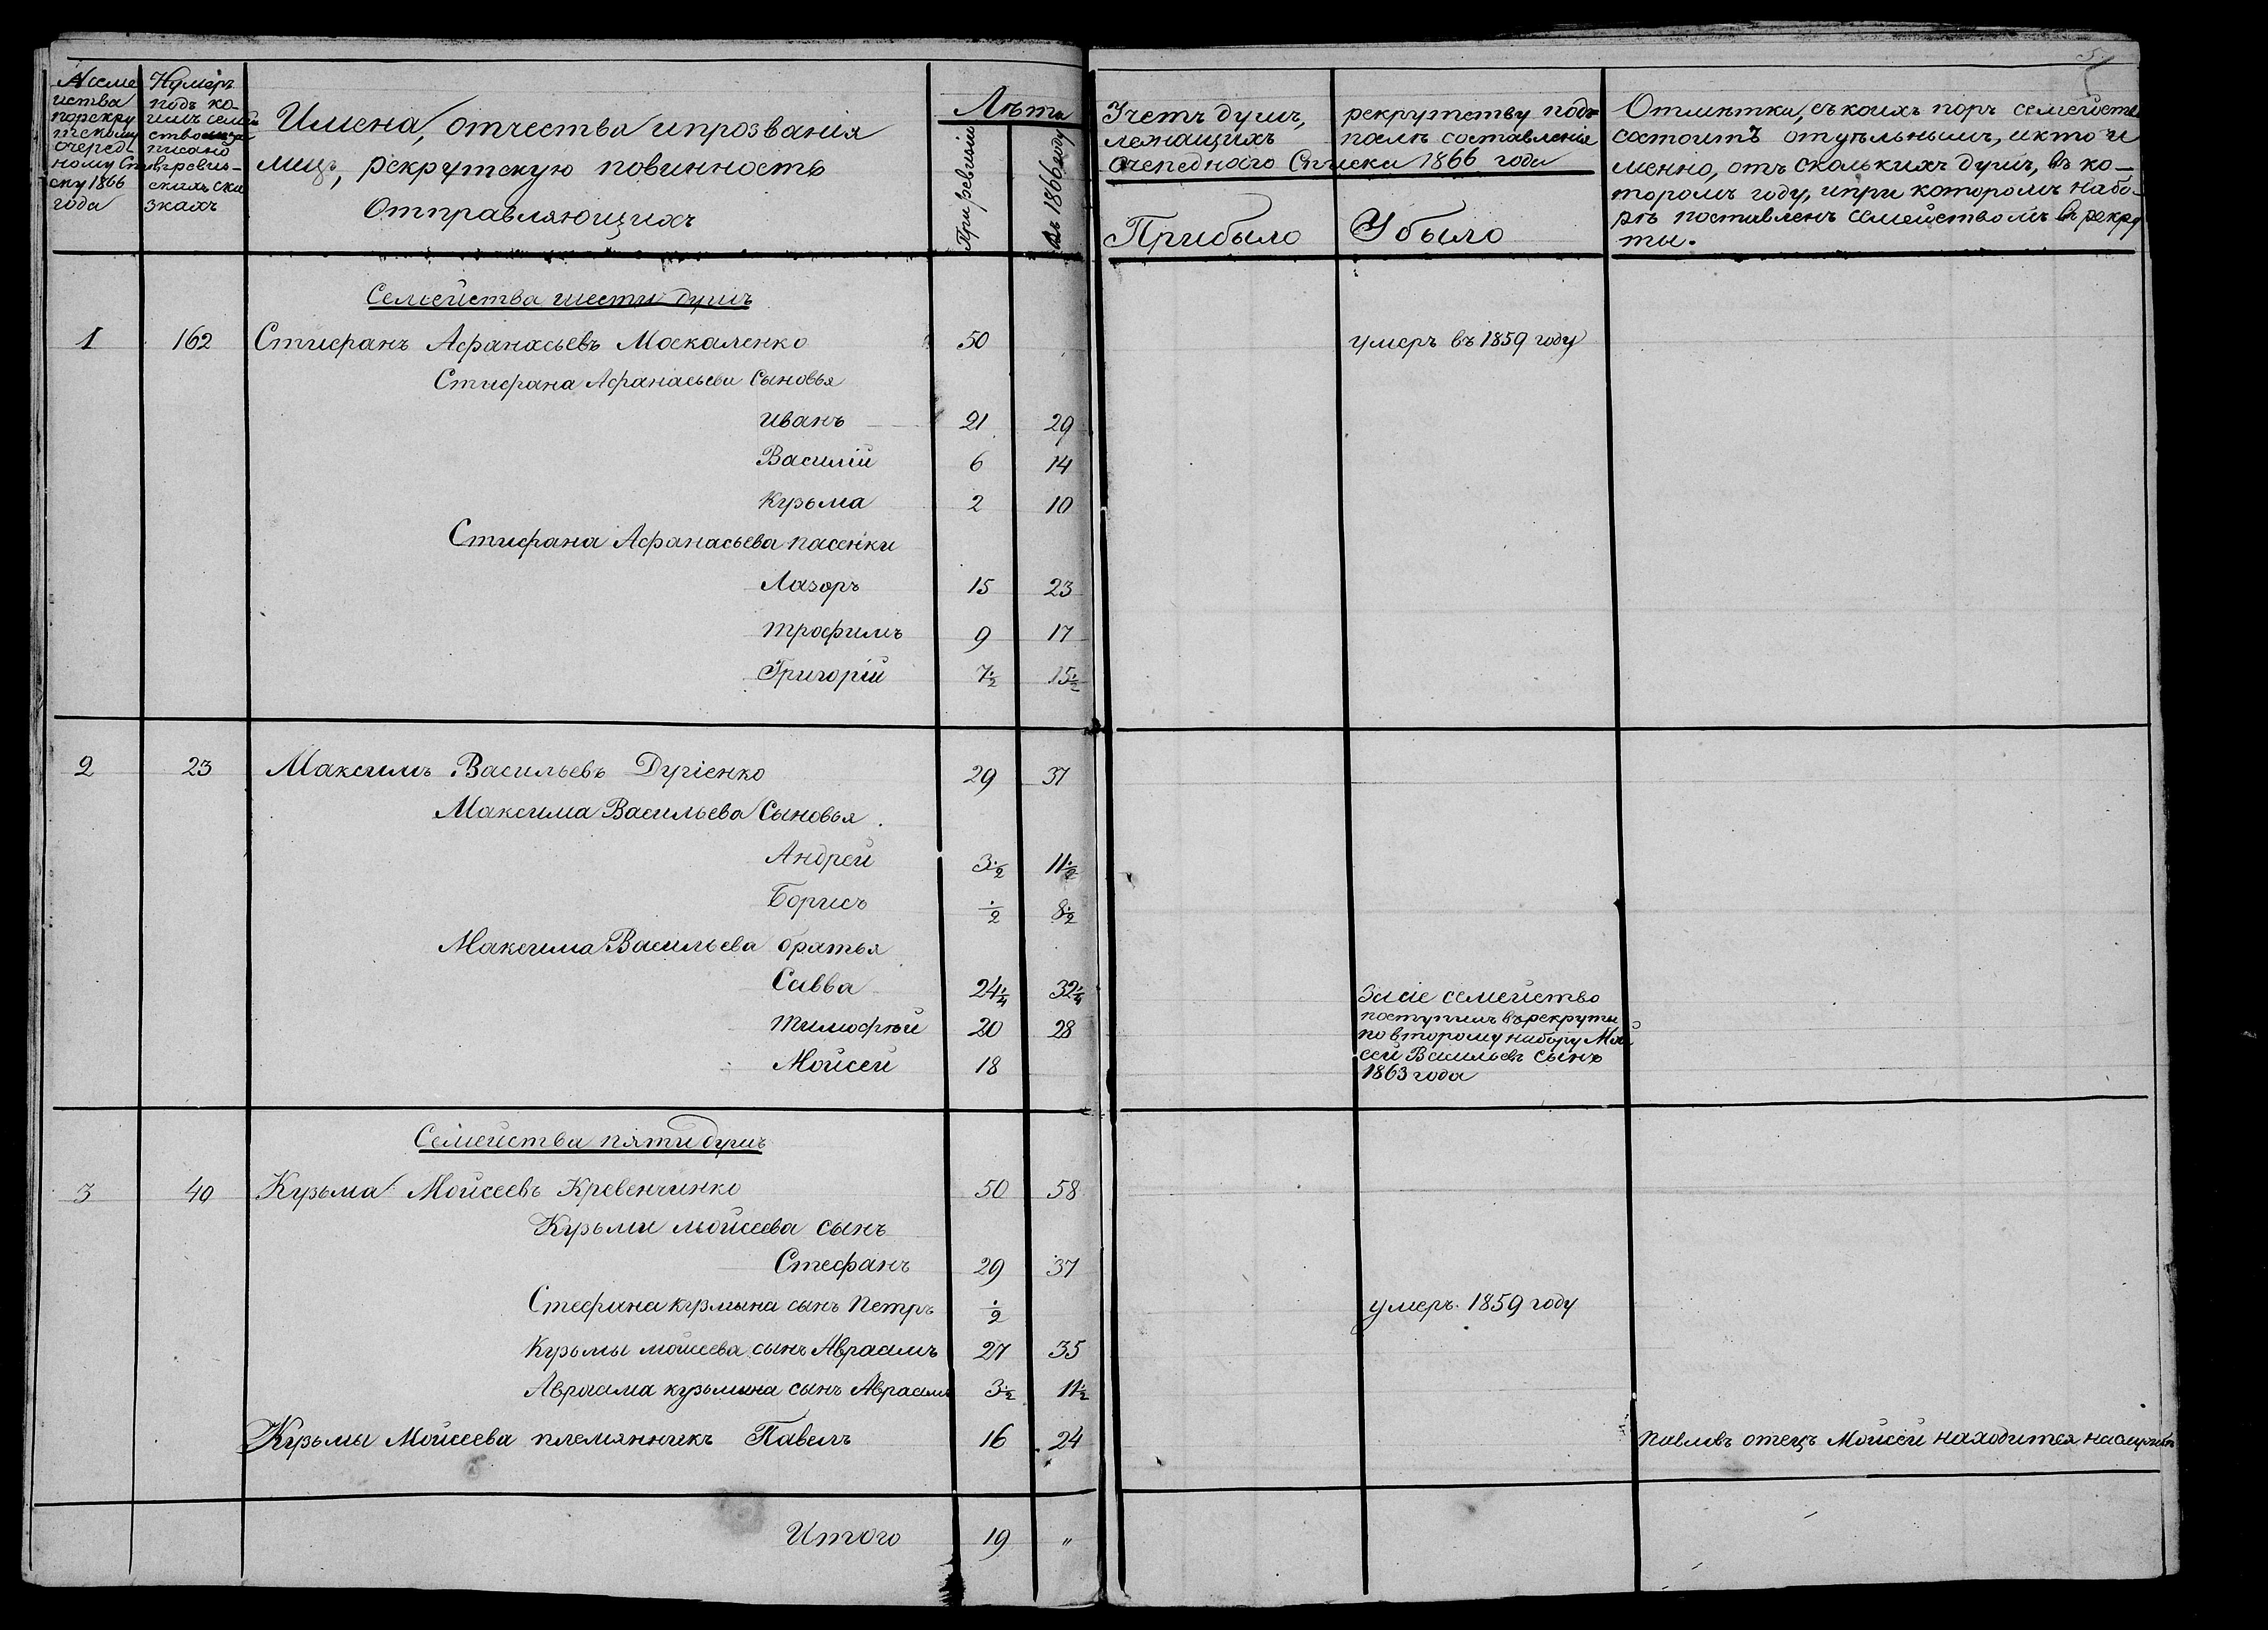 № семе
йства
порекру
тскому
очеред-
ному Сп
ску 1866
года
Нумеръ
подъ ко-
имъ семей
ство
писано
въ ревиз-
скихъ ска
зкахъ
Имена, отчества и прозванія
лицъ, рекрутскую повинность
Отправляющихъ
Лѣта
При ревизіи
Въ 1866 году
5
Учетъ душъ, рекрутству подъ
лежащихъ послѣ составленія
очереднаго Списка 1866 года
Прибыло
Убыло
Отмѣтки, съ коихъ поръ семейство
состоитъ отдѣльнымъ, и кто и
менно, отъ сколькихъ душъ, въ ко-
торомъ году, и при которомъ набо-
рѣ поставленъ семействомъ въ рекру
ты.
Семейства шести душъ
1 162 Стисранъ Афанасьевъ Москаленко 50 умеръ въ 1859 году
Стисрана Афанасьева Сыновья
Иванъ 21 29
Василій 6 14
Кузьма 2 10
Стисрана Афанасьева пасенки
Лазоръ 15 23
Трофимъ 9 17
Григорій 7½ 15½
2 23 Максимъ Васильевъ Дугіенко 29 37
Максима Васильева Сыновья
Андрей 3½ 11½
Борисъ ½ 8½
Максима Васильева братья
Савва 24¼ 32¼
Тимофѣй 20 28
Мойсей 18
За сіе семейство
поступилъ въ рекруты
по второму набору Мой
сей Васильевъ сынъ
1863 года
Семейства пяти душъ
3 40 Кузьма Мойсеевъ Кревенчинко 50 58
Кузьми мойсеева сынъ
Стефанъ 29 37
Стефана кузмина сынъ Петръ ½ умеръ 1859 году
Кузьмы мойсеева сынъ Авраамъ 27 35
Авраама кузьмина сынъ Авраамъ 3½ 11½
Кузьмы Мойсеева племянникъ Павелъ 16 24 Павловъ отецъ Мойсей находится на службѣ
Итого 19 "